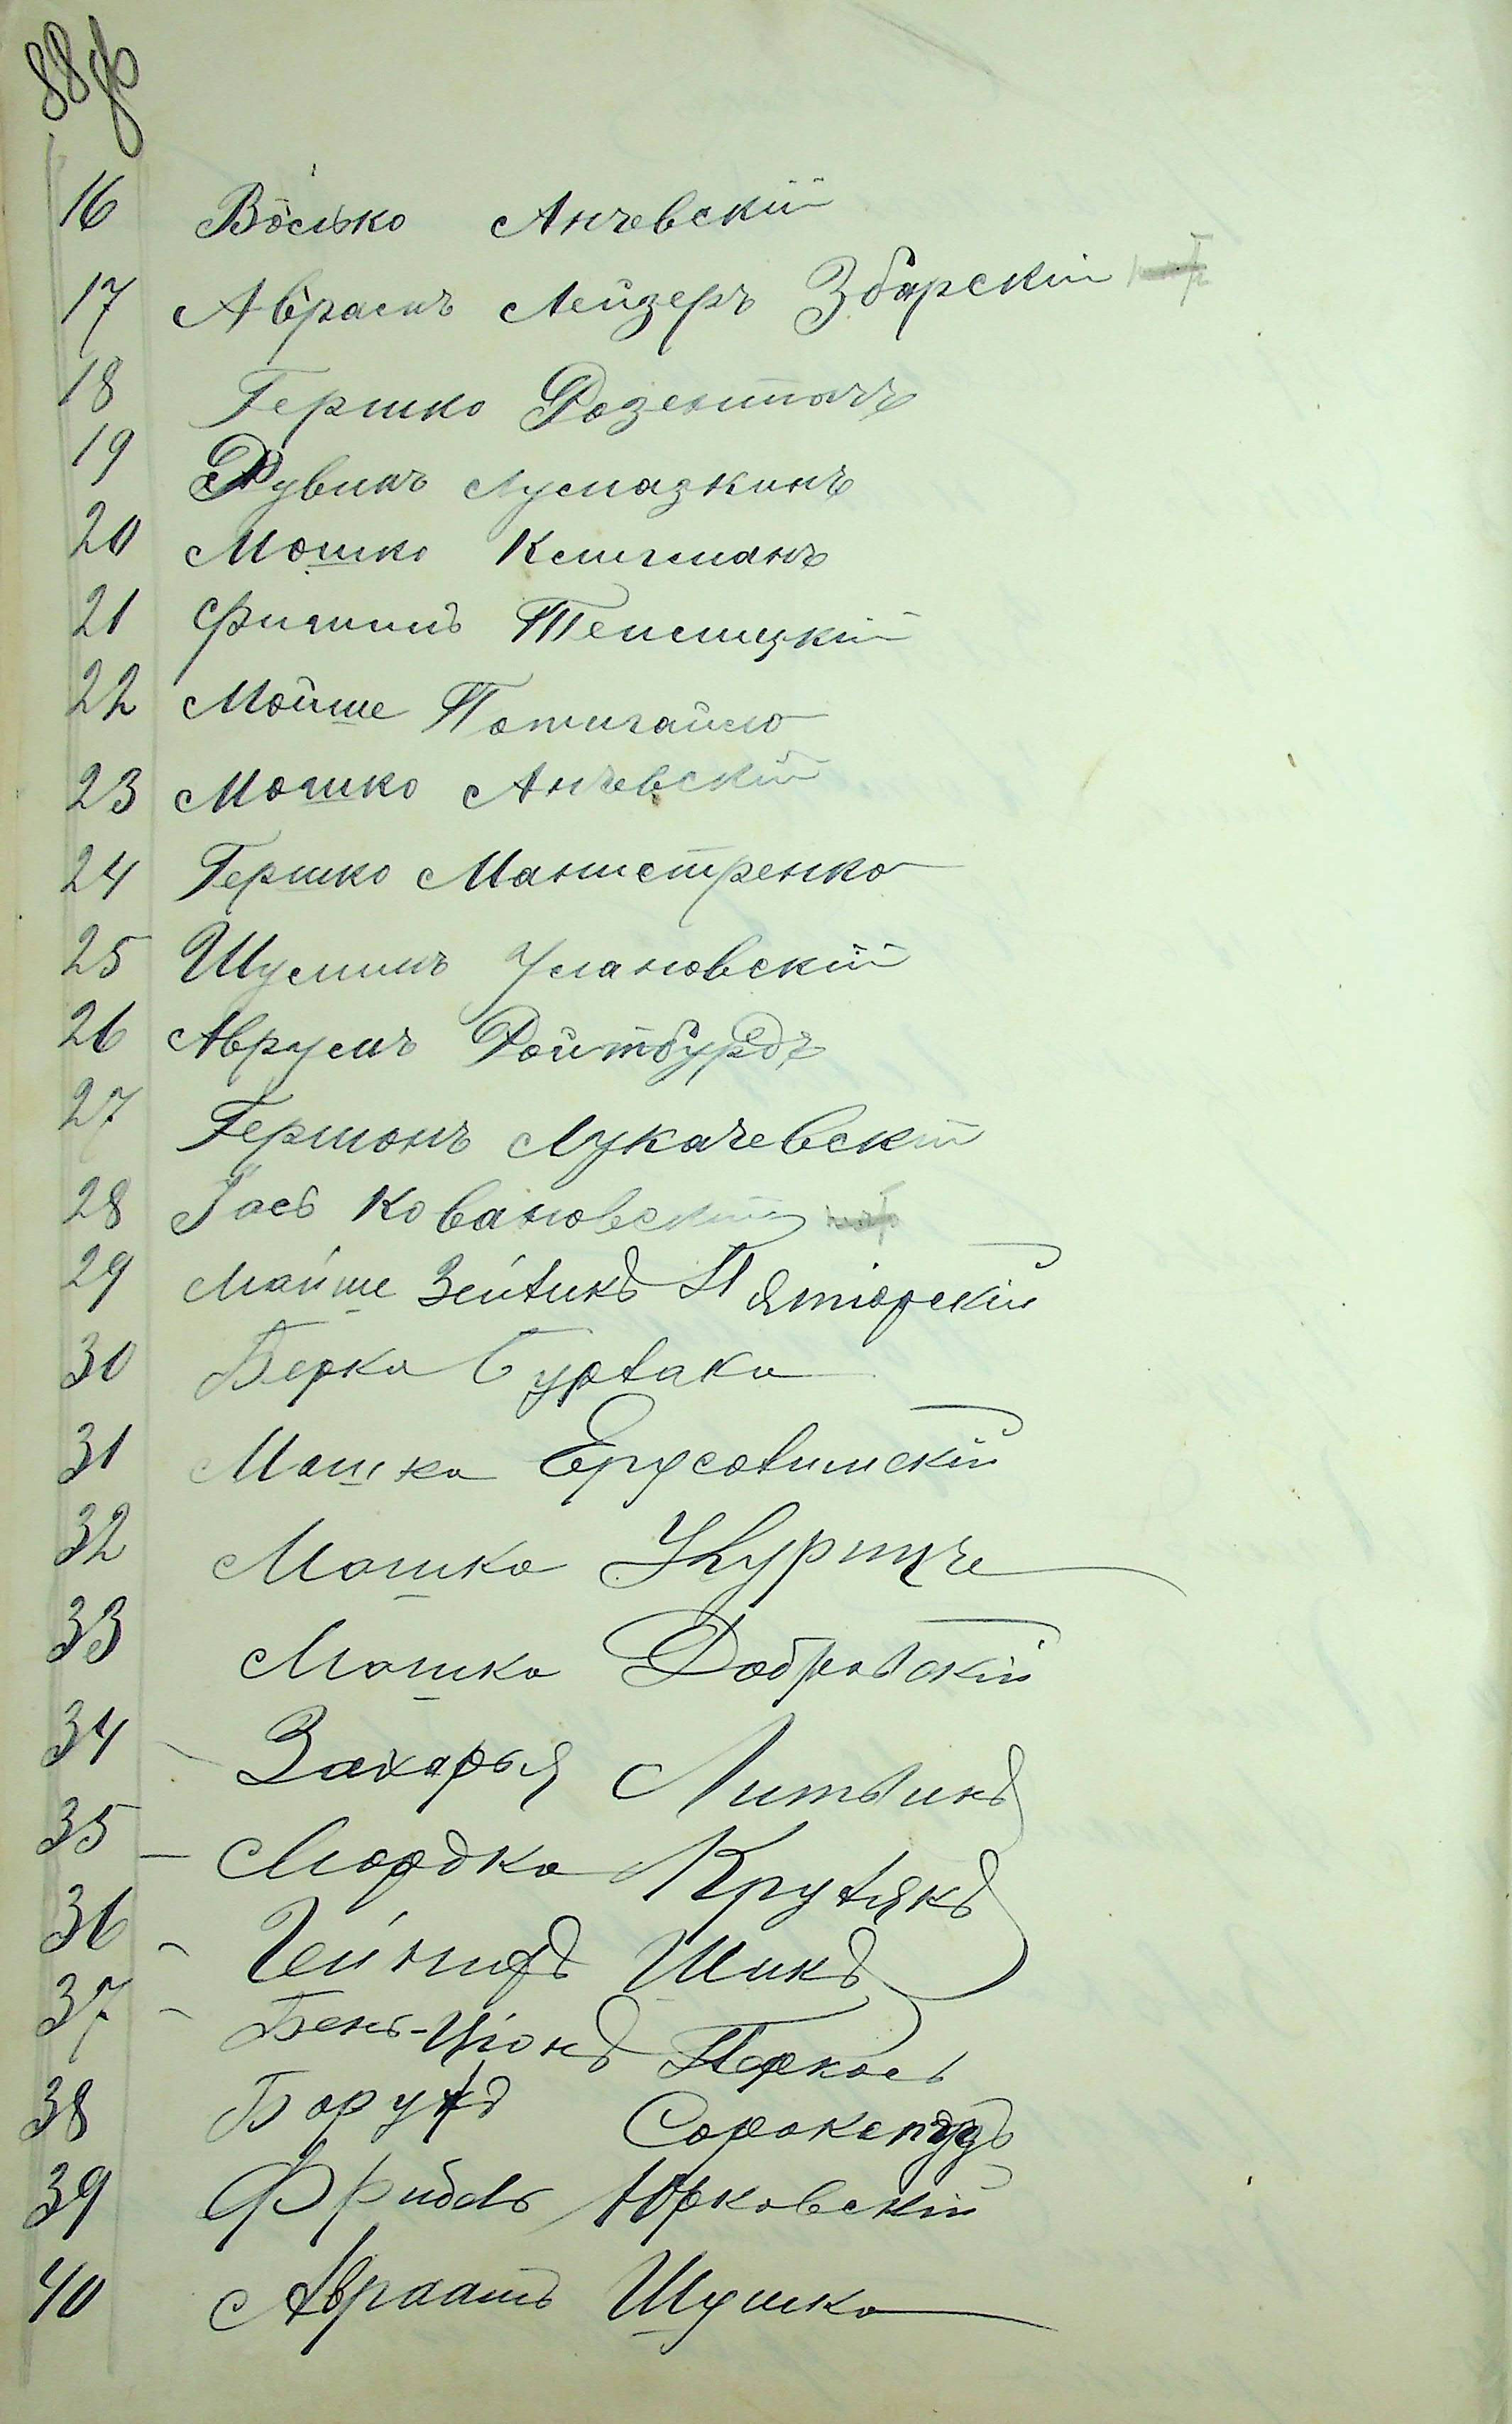 88 об
16 Во́сько Анчевскій
17 Аврамъ Лейзеръ Збарскій
18 Гершко Розенталъ
19 Рувинъ Лумазкинъ
20 Мошко Клигманъ
21 Фишель Теплицкій
22 Мойше Пожигайло
23 Мошко Анчевскій
24 Гершко Манистренко
25 Шулимъ Улановскій
26 Аврумъ Ройтбурдъ
27 Гершонъ Лукачевскій
28 Іось Ковановскій
29 Мойше Зейликъ Пятіорскій
30 Берко Бурлака
31 Мошко Ерусалимскій
32 Мошко
33 Мошко Добровскій
34 Захарья Литвинъ
35 Мордко Крутякъ
36 Шикъ
37 Бенъ-Ціонъ Перкель
38 Борухъ
39 Фроимъ Юрковскій
40 Авраамъ Шушко